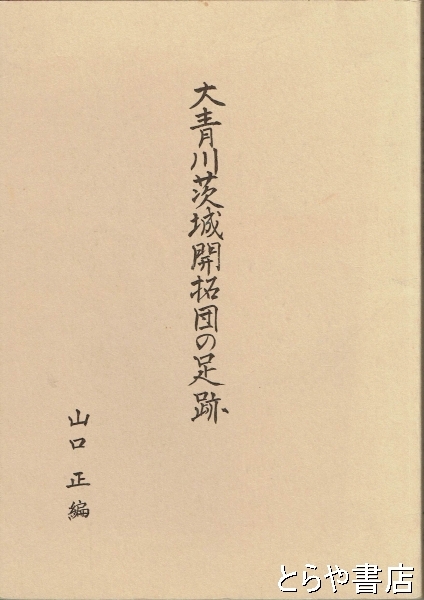 大青川茨城開拓団の足跡
山口正編
とらや書店